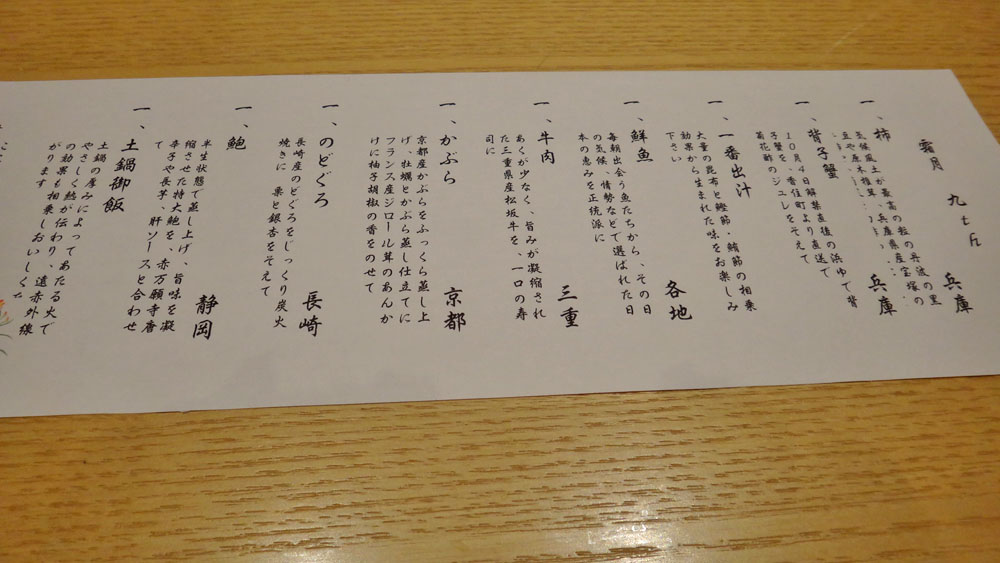 霜月
兵庫
一、柿
兵庫
気候風土が最高の
一、背子蟹
10月4日解禁直後の浜ゆで背
子蟹を、香住町より直送で
菊花酢のジュレをそえて
一、一番出汁
大量の昆布と鰹節・鮪節の相乗
効果から生まれた味をお楽しみ
下さい
一、鮮魚
各地
毎朝出会う魚たちから、その日
の気候、情勢などで選ばれた日
本の恵みを正統派に
一、牛肉
三重
あくが少なく、旨みが凝縮され
た三重県産松坂牛を、一口の寿
司に
一、かぶら
京都
京都産かぶらをふっくら蒸し上
げ、牡蠣とかぶら蒸し仕立てに
フランス産ジロール茸のあんか
けに柚子胡椒の香をのせて
一、のどぐろ
長崎
長崎産のどぐろをじっくり炭火
焼きに 栗と銀杏をそえて
一、鮑
静岡
半生状態で蒸し上げ、旨味を凝
縮させた特大鮑を、赤万願寺唐
辛子や長芋、肝ソースと合わせ
て
一、土鍋御飯
土鍋の厚みによってあたる火で
やさしく熱が伝わり、遠赤外線
の効果も相乗しおいしくな
がります